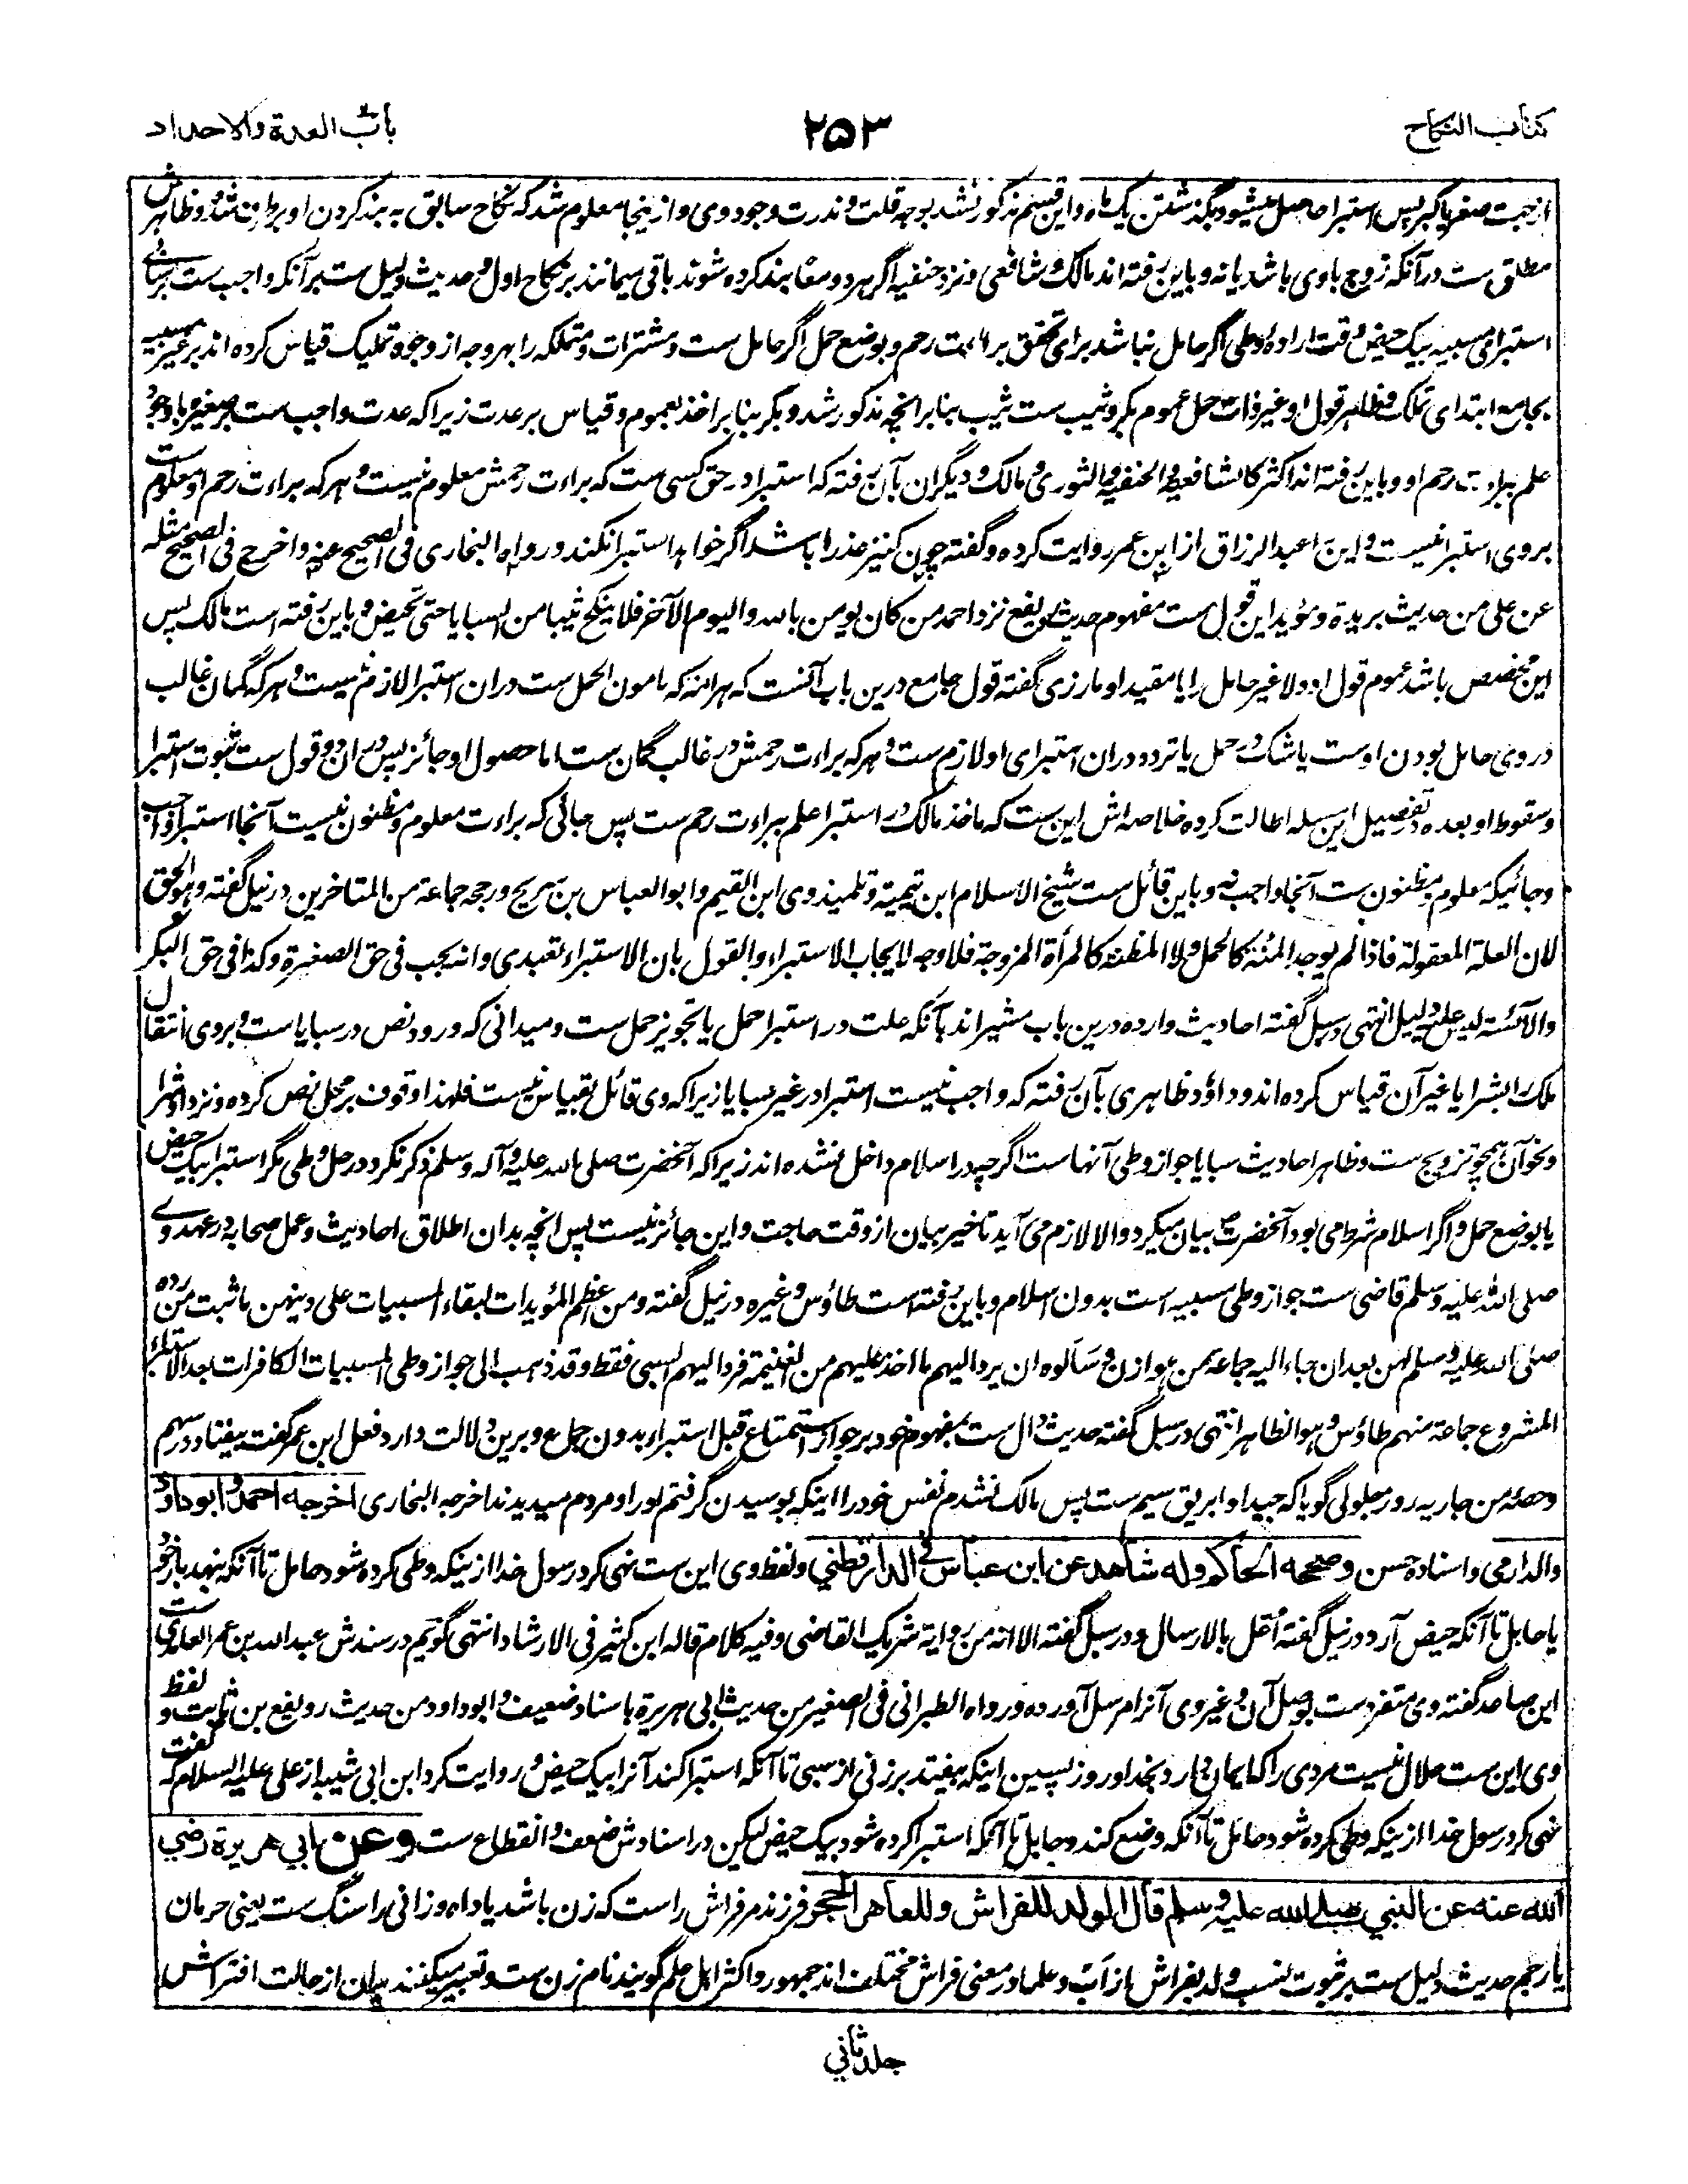 کتاب النکاح
۲۵۳
باب العدة والاحداد
از جهت صغر یا کبر پس استبرا حاصل میشود بگذشتن یک ماه و این قسم مذکور نشد بوجه قلت و ندرت وجود وی و از ینجا معلوم شد که نکاح سابق به بند کردن او برطرف شد و ظاهرش
مطلق ست در آنکه زوج باوی باشد یا نه و باین رفته اند مالک و شافعی و نزد حنفیه اگر هر دو معا بند کرده شوند باقی میمانند بر نکاح اول و حدیث دلیل ست بر آنکه واجب ست بر سابی
استبرای مسبیه بیک حیض وقت اراده وطی اگر حامل نباشد برای تحقق براءت رحم و بوضع حمل اگر حامل ست و مشترات و متملکه را بهر وجه از وجوه تملیک قیاس کرده اند بر مسبیه
بجامع ابتدای تملک و ظاهر قول او غیر ذات حمل عموم بکر و ثیب ست ثیب بنا بر انچه مذکور شد و بکر بنا بر اخذ بعموم و قیاس بر عدت زیرا که عدت واجب ست بر صغیره با وجود
علم ببراءت رحم او و باین رفته اند اکثر کالشافعیة والحنفیة والثوری و مالک و دیگران بآن رفته که استبرا در حق کسی ست که براءت رحمش معلوم نیست و هر که براءت رحم او معلوم ست
بروی استبرا نیست و این را عبد الرزاق از ابن عمر روایت کرده و گفته چون کنیز عذرا باشد اگر خواهد استبرا نکند و رواه البخاری فی الصحیح عنه و اخرج فی الصحیح مثله
عن علی من حدیث بریدة و مؤید این قول ست مفهوم حدیث رویفع نزد احمد من کان یومن بالله والیوم الآخر فلا ینکح ثیبا من السبایا حتی تحیض و باین رفته است مالک پس
این مخصص باشد عموم قول او ولا غیر حامل را یا مقید او مازری گفته قول جامع درین باب آنست که هر امة که مامون الحمل ست دران استبرا لازم نیست و هر که گمان غالب
در وی حامل بودن اوست یا شک در حمل یا تردد دران استبرای او لازم ست و هر که براءت رحمش در غالب گمان ست اما حصول او جائز پس دران دو قول ست ثبوت استبرا
و سقوط او بعده تفصیل این مسله اطالت کرده خلاصه اش این ست که ماخذ مالک در استبرا علم ببراءت رحم ست پس جائی که براءت معلوم و مظنون نیست آنجا استبرا واجب
و جائیکه معلوم و مظنون ست آنجا واجب نه و باین قائل ست شیخ الاسلام ابن تیمیة و تلمیذ وی ابن القیم و ابو العباس بن سریج و رجحه جماعة من المتاخرین در نیل گفته وهو الحق
لان العلة المعقولة فاذا لم یوجد المئنة کالحمل ولا المظنة کالمرأة المزوجة فلا وجه لایجاب الاستبراء والقول بان الاستبراء تعبدی وانه یجب فی حق الصغیرة وکذا فی حق البکر
والآئسة لیس علیه دلیل انتهی و در سبل گفته احادیث وارده درین باب مشیر اند بآنکه علت در استبرا حمل یا تجویز حمل ست و میدانی که ورود نص در سبایا است و بروی انتقال
ملک بالشرا یا غیر آن قیاس کرده اند و داؤد ظاهری بآن رفته که واجب نیست استبرا در غیر سبایا زیرا که وی قائل بقیاس نیست فلهذا وقوف بر محل نص کرده و نزد او شرا
و نحو آن همچو تزویج ست و ظاهر احادیث سبایا جواز وطی آنهاست اگرچه در اسلام داخل نشده اند زیرا که آنحضرت صلی الله علیه و آله وسلم ذکر نکرد در حل وطی مگر استبرا بیک حیض
یا بوضع حمل و اگر اسلام شرط می بود آنحضرت بیان میکرد والا لازم می آید تاخیر بیان از وقت حاجت و این جائز نیست پس انچه بدان اطلاق احادیث و عمل صحابه در عهد وے
صلی الله علیه وسلم قاضی ست جواز وطی مسبیه است بدون اسلام و باین رفته است طاؤس و غیره در نیل گفته ومن اعظم المؤیدات لبقاء المسبیات علی دینهن ما ثبت من رده
صلی الله علیه وسلم لهن بعد ان جاء الیه جماعة من هوازن و سألوه ان یرد الیهم ما اخذ علیهم من الغنیمة فرد الیهم السبی فقط وقد ذهب الی جواز وطی المسبیات الکافرات بعد الاستبراء
المشروع جماعة منهم طاؤس وهو الظاهر انتهی در سبل گفته حدیث دال ست بمفهوم خود بر جواز استمتاع قبل استبراء بدون جماع و برین دلالت دارد فعل ابن عمر گفت بیفتاد در سهم
وحصه من جاریه روز جلولی گویا که جید او ابریق سیم ست پس مالک نشدم نفس خود را اینکه بوسیدن گرفتم او را و مردم میدیدند اخرجه البخاری اخرجه احمد و ابوداود
والدارمی و اسناده حسن وصححه الحاکم وله شاهد عن ابن عباس فی الدارقطني و لفظ وی این ست نهی کرد رسول خدا از ینکه وطی کرده شود حامل تا آنکه بنهد بار خود
یا حایل تا آنکه حیض آرد و در نیل گفته اعل بالارسال و در سبل گفته الا انه من روایة شریک القاضی و فیه کلام قاله ابن کثیر فی الارشاد انتهی گویم در سندش عبد الله بن عمر العابدی ست
ابن صاعد گفته وی متفرد ست بوصل آن و غیر وی آنرا مرسل آورده و رواه الطبرانی فی الصغیر من حدیث ابی هریرة باسناد ضعیف و ابو داود من حدیث رویفع بن ثابت و لفظ
وی این ست حلال نیست مردی را که ایمان دارد بخدا و روز پسین اینکه بیفتد بر زنی از سبی تا آنکه استبرا کند آنرا بیک حیض و روایت کرد ابن ابی شیبه از علی علیه السلام که گفت
نهی کرد رسول خدا از ینکه وطی کرده شود حامل تا آنکه وضع کند و حایل تا آنکه استبرا کرده شود بیک حیض لیکن در اسنادش ضعف و انقطاع ست وعن ابي هريرة رضي
الله عنه عن النبي صلى الله عليه وسلم قال الولد للفراش وللعاهر الحجر فرزند مر فراش را ست که زن باشد یا داه و زانی را سنگ ست یعنی حرمان
یا رجم حدیث دلیل ست بر ثبوت نسب ولد بفراش از اب و علما در معنی فراش مختلف اند جمهور و اکثر اهل علم گویند نام زن ست و تعبیر میکنند بدان از حالت افتراش
جلد ثاني